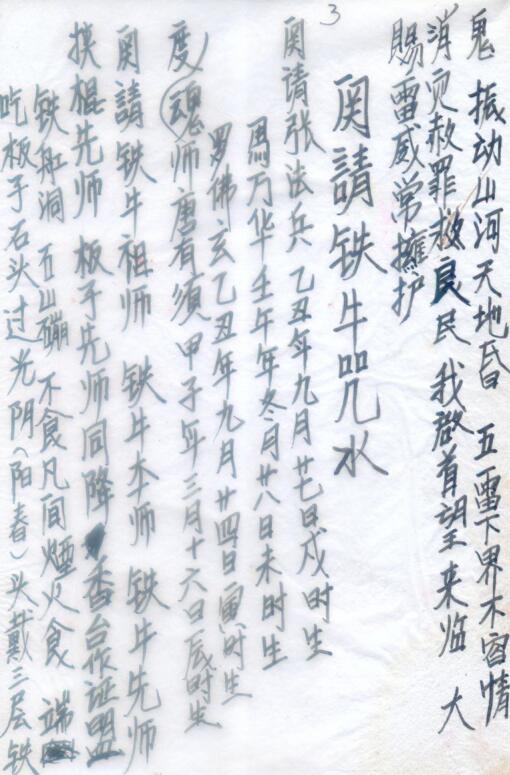 3
鬼 振动山河天地昏 五雷下界不容情
消灾赦罪救良民 我啟首望来临 大
賜雷威常擁护
奉請铁牛咒水
奉请张法兵 乙丑年九月廿七日戍时生
馬万华壬午年冬月廿八日未时生
罗佛玄乙丑年九月廿四日寅时生
度魂师唐有须 甲子年三月十六日辰时生
奉請铁牛祖师 铁牛本师 铁牛先师
棍先师 板子先师同降 香台作证盟
铁船洞 五山磞 不食凡间煙火食 端
吃板子石头过光阴（阳春）头戴三层铁